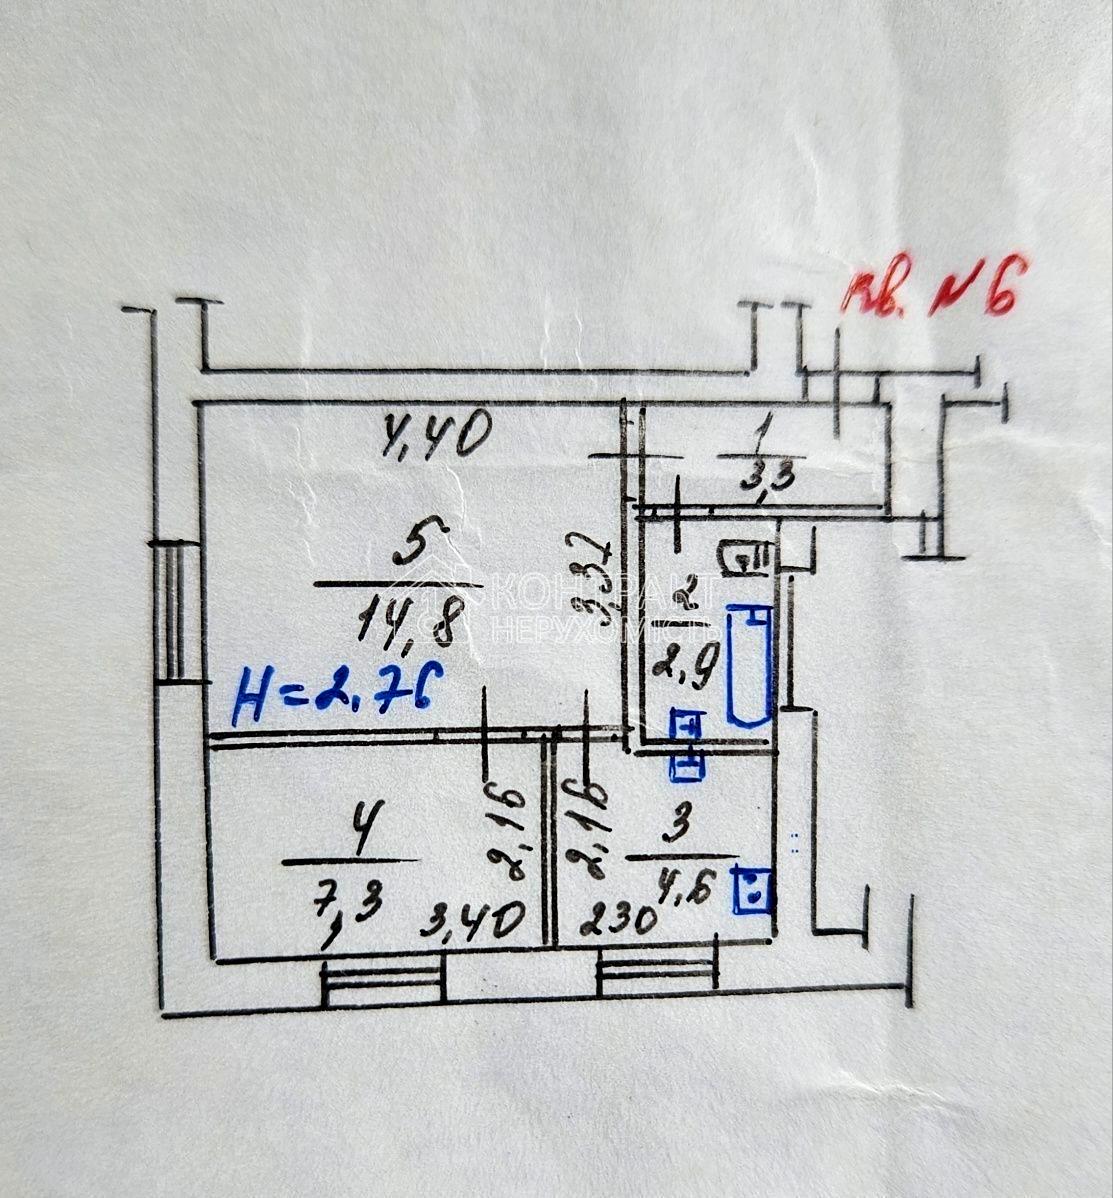 кв. №6
4,40
1
3,3
5
14,8
3,37
2
2,9
КОНТРАКТ
НЕРУХОМІСТЬ
H=2,76
4
7,3
2,16
3,40
2,16
3
4,6
230